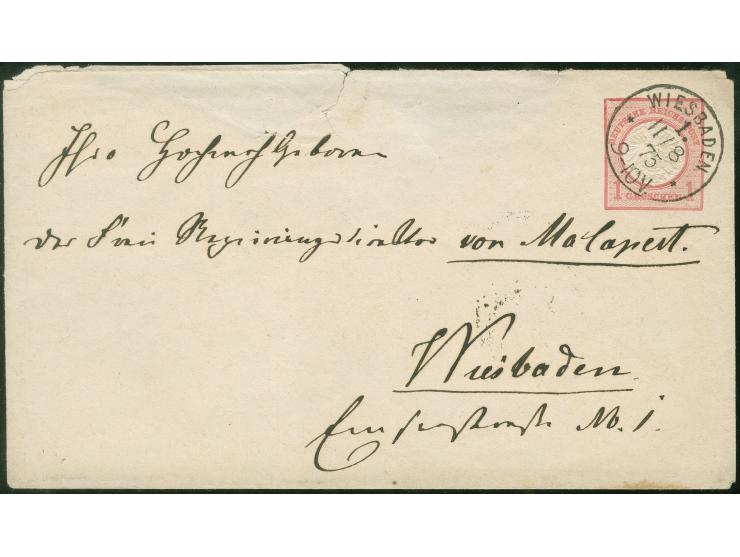 WIESBADEN
1.
11/8
75
9-10V.
DEUTSCHE REICHS-POST
1 GROSCHEN 1
Ihro Hochwohlgeboren
der Frau Regierungsdirektor von Malapert.
Wiesbaden
Emserstraße No. 1.